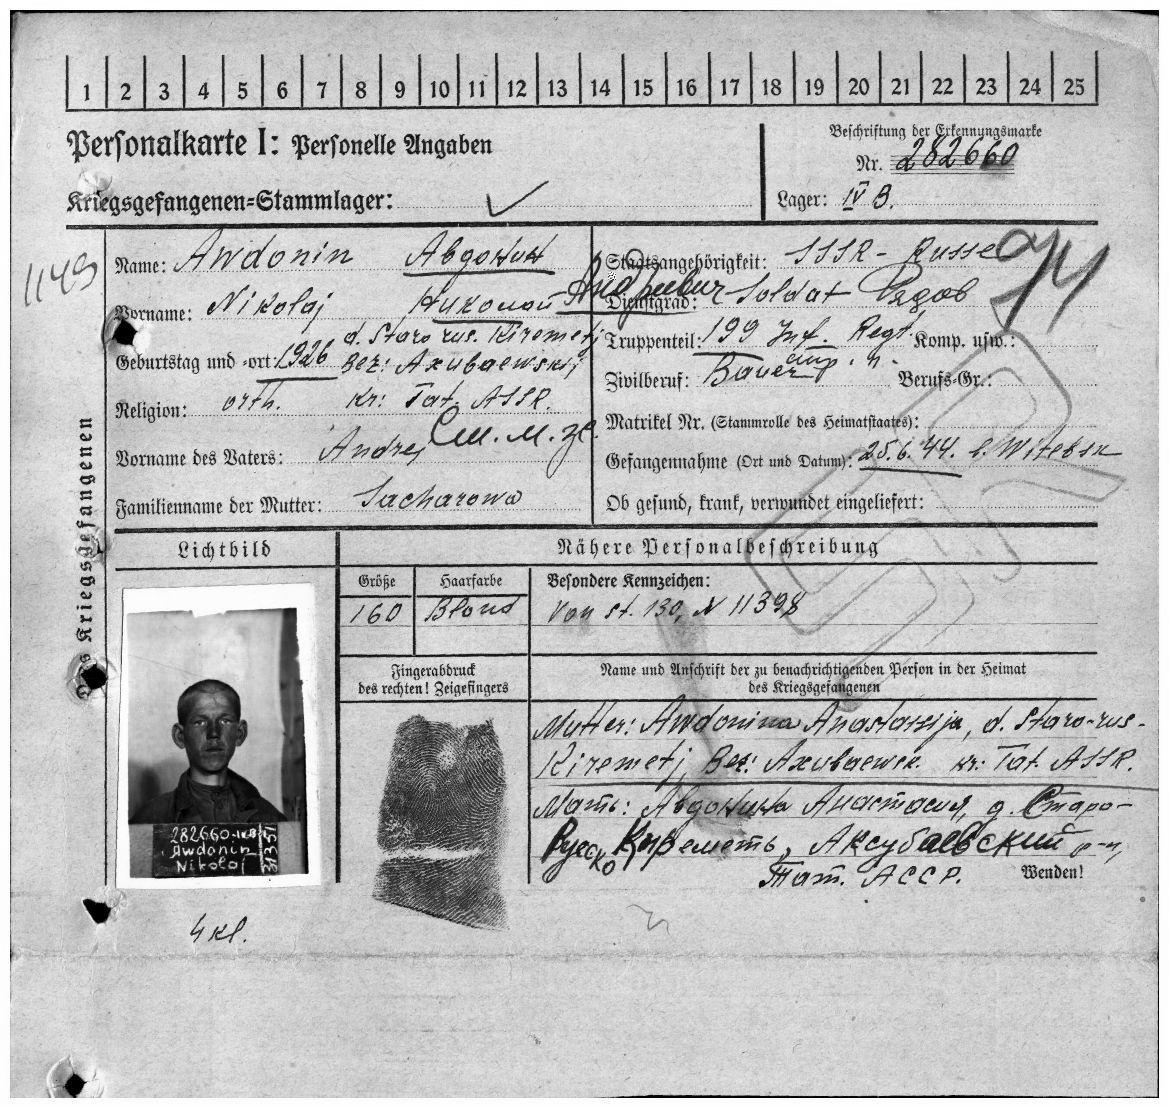 1 2 3 4 5 6 7 8 9 10 11 12 13 14 15 16 17 18 19 20 21 22 23 24 25
Personalkarte I: Personelle Angaben
Beschriftung der Erkennungsmarke
Nr. 282660
Kriegsgefangenen-Stammlager:
Lager: IV B.
1149
des Kriegsgefangenen
Name: Awdonin Авдонин
Vorname: Nikolaj Николай Андреевич
d. Staro rus. Kiremetj
Geburtstag und -ort: 1926 Bez: Axubaewskij
Religion: orth. Kr: Tat. ASSR.
Vorname des Vaters: Andrej
Familienname der Mutter: Sacharowa
Staatsangehörigkeit: SSSR - Russe
Dienstgrad: Soldat Рядов
Truppenteil: 199 Inf. Regt. Komp. usw.:
Zivilberuf: Bauer Berufs-Gr.:
Matrikel Nr. (Stammrolle des Heimatstaates):
Gefangennahme (Ort und Datum): 25.6.44. b. Witebsk
Ob gesund, krank, verwundet eingeliefert:
Lichtbild
Nähere Personalbeschreibung
Größe Haarfarbe Besondere Kennzeichen:
160 Blond Von St. 130, N 11398
Fingerabdruck
des rechten! Zeigefingers
Name und Anschrift der zu benachrichtigenden Person in der Heimat
des Kriegsgefangenen
Mutter: Awdonina Anastassija, d. Staro-rus-
Kiremetj, Bez: Axubaewsk. kr: Tat. ASSR.
Мать: Авдонина Анастасия, д. Старо-
Русско Киреметь, Аксубаевский р-н,
Тат. АССР.
Wenden!
282660-IVB
Awdonin
Nikolaj
31351
4 kl.